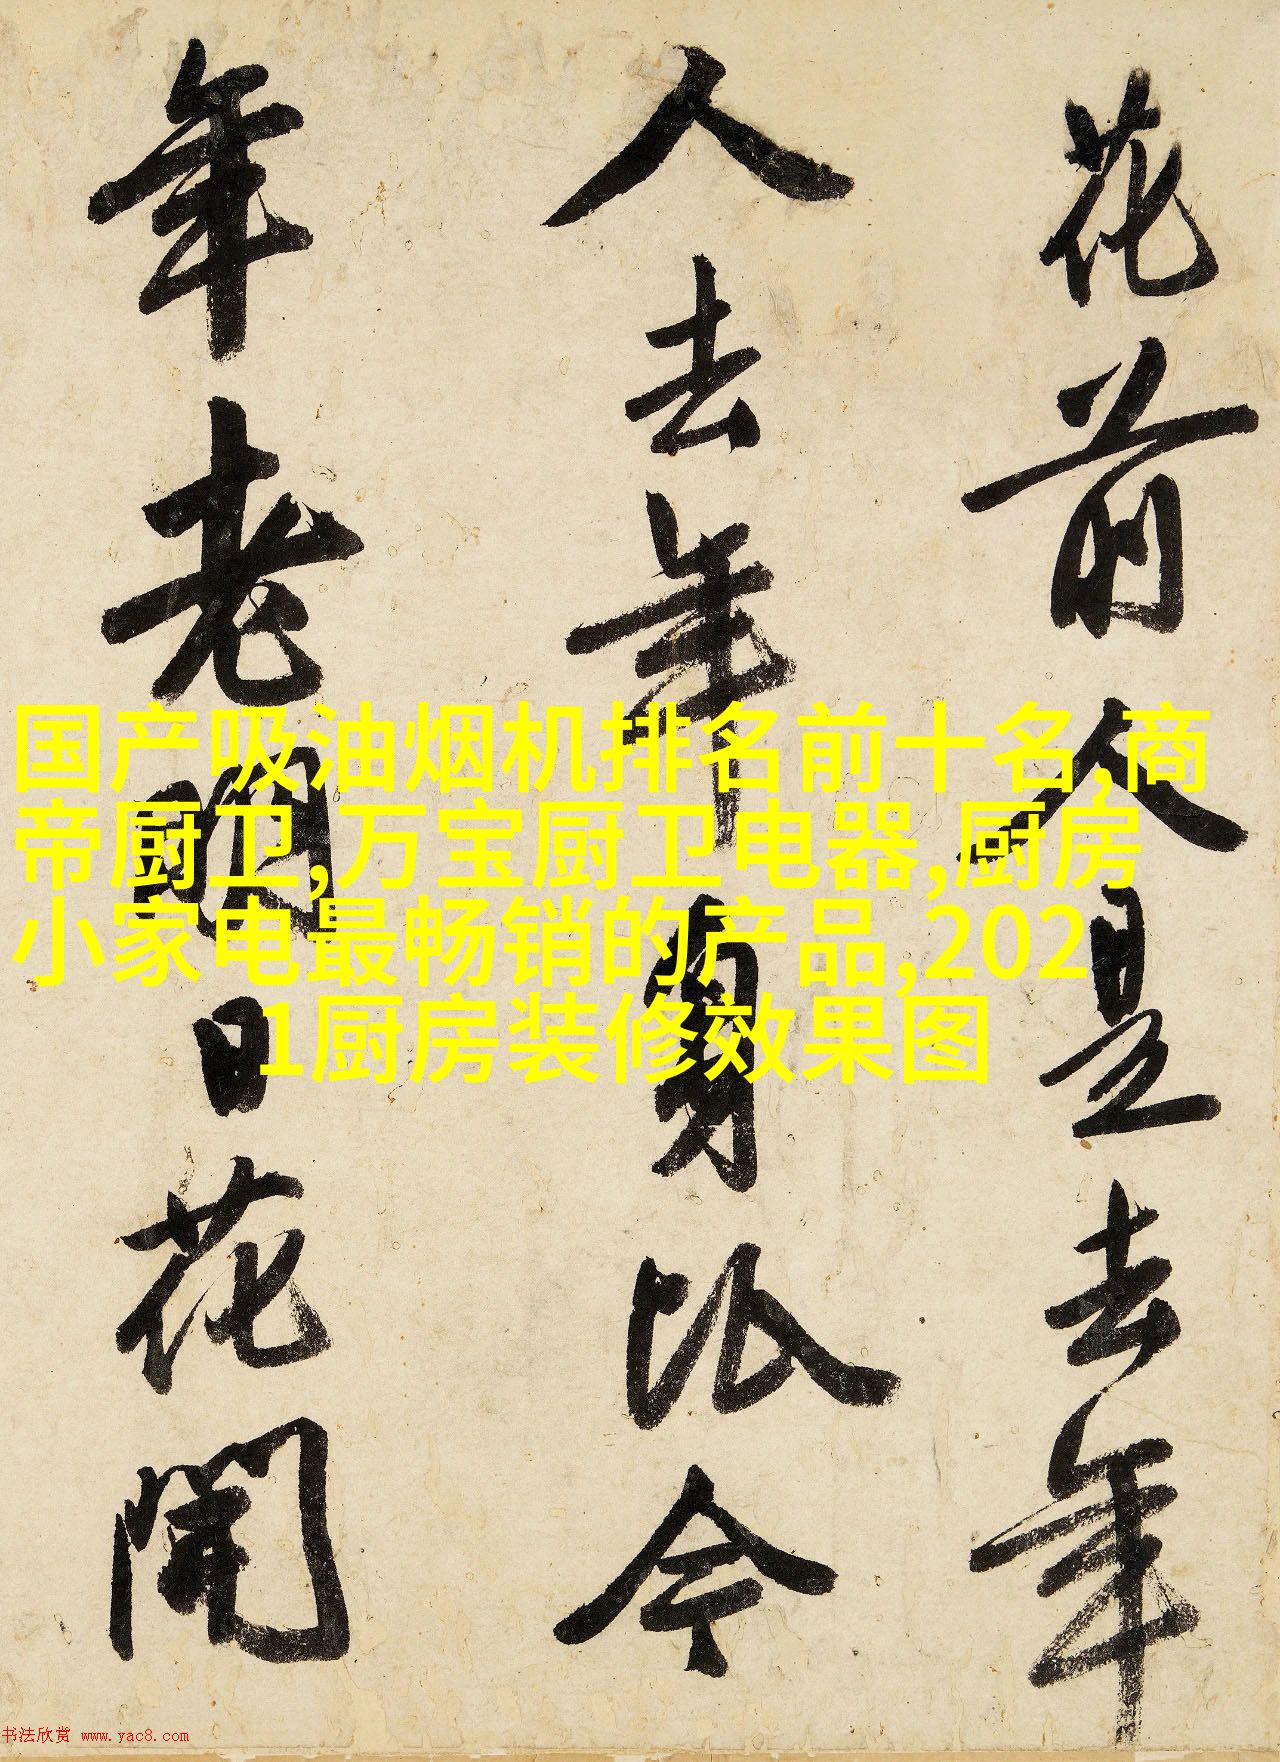 花前人是去年
人去年身比今
年老明日花開
国产吸油烟机排名前十名,商
帝厨卫,万宝厨卫电器,厨房
小家电最畅销的产品,202
1厨房装修效果图
书法欣赏 www.yac8.com